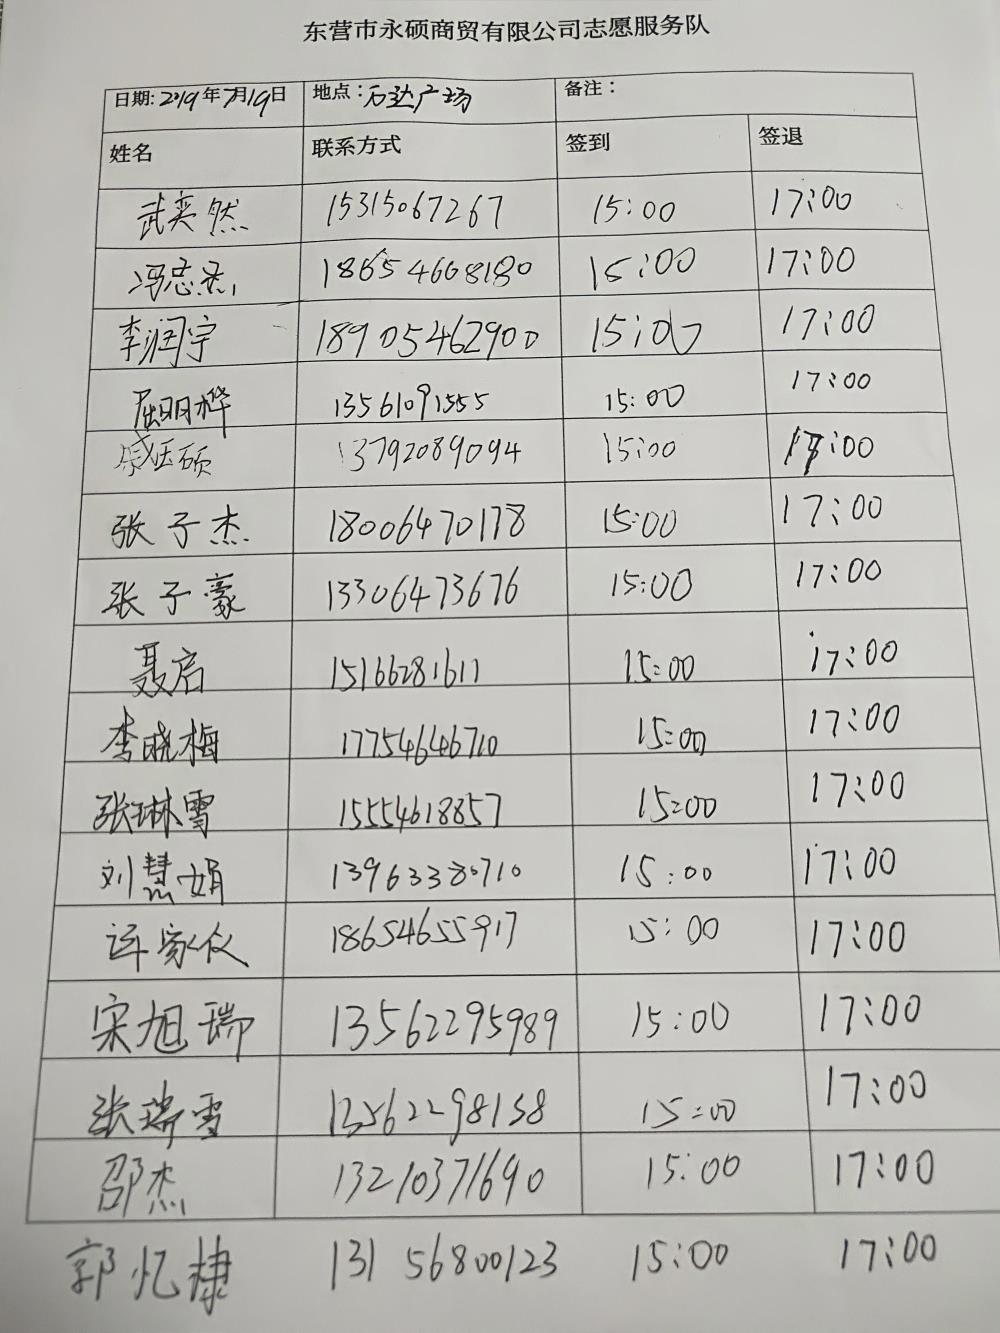 东营市永硕商贸有限公司志愿服务队
日期: 2019年7月19日 地点: 石达广场 备注:
姓名 联系方式 签到 签退
武奕然 15315067267 15:00 17:00
冯志杰 18654668180 15:00 17:00
李润宇 18905462900 15:00 17:00
屈明桦 13561091555 15:00 17:00
戚玉硕 13792089094 15:00 17:00
张子杰 18006470178 15:00 17:00
张子豪 13306473676 15:00 17:00
聂启 15166281611 15:00 17:00
李晓梅 17754646710 15:00 17:00
张琳雪 15554618857 15:00 17:00
刘慧娟 13963380710 15:00 17:00
连家仪 18654655917 15:00 17:00
宋旭瑞 13562295989 15:00 17:00
张瑞雪 13562298158 15:00 17:00
邵杰 13210371690 15:00 17:00
郭忆棣 13156800123 15:00 17:00